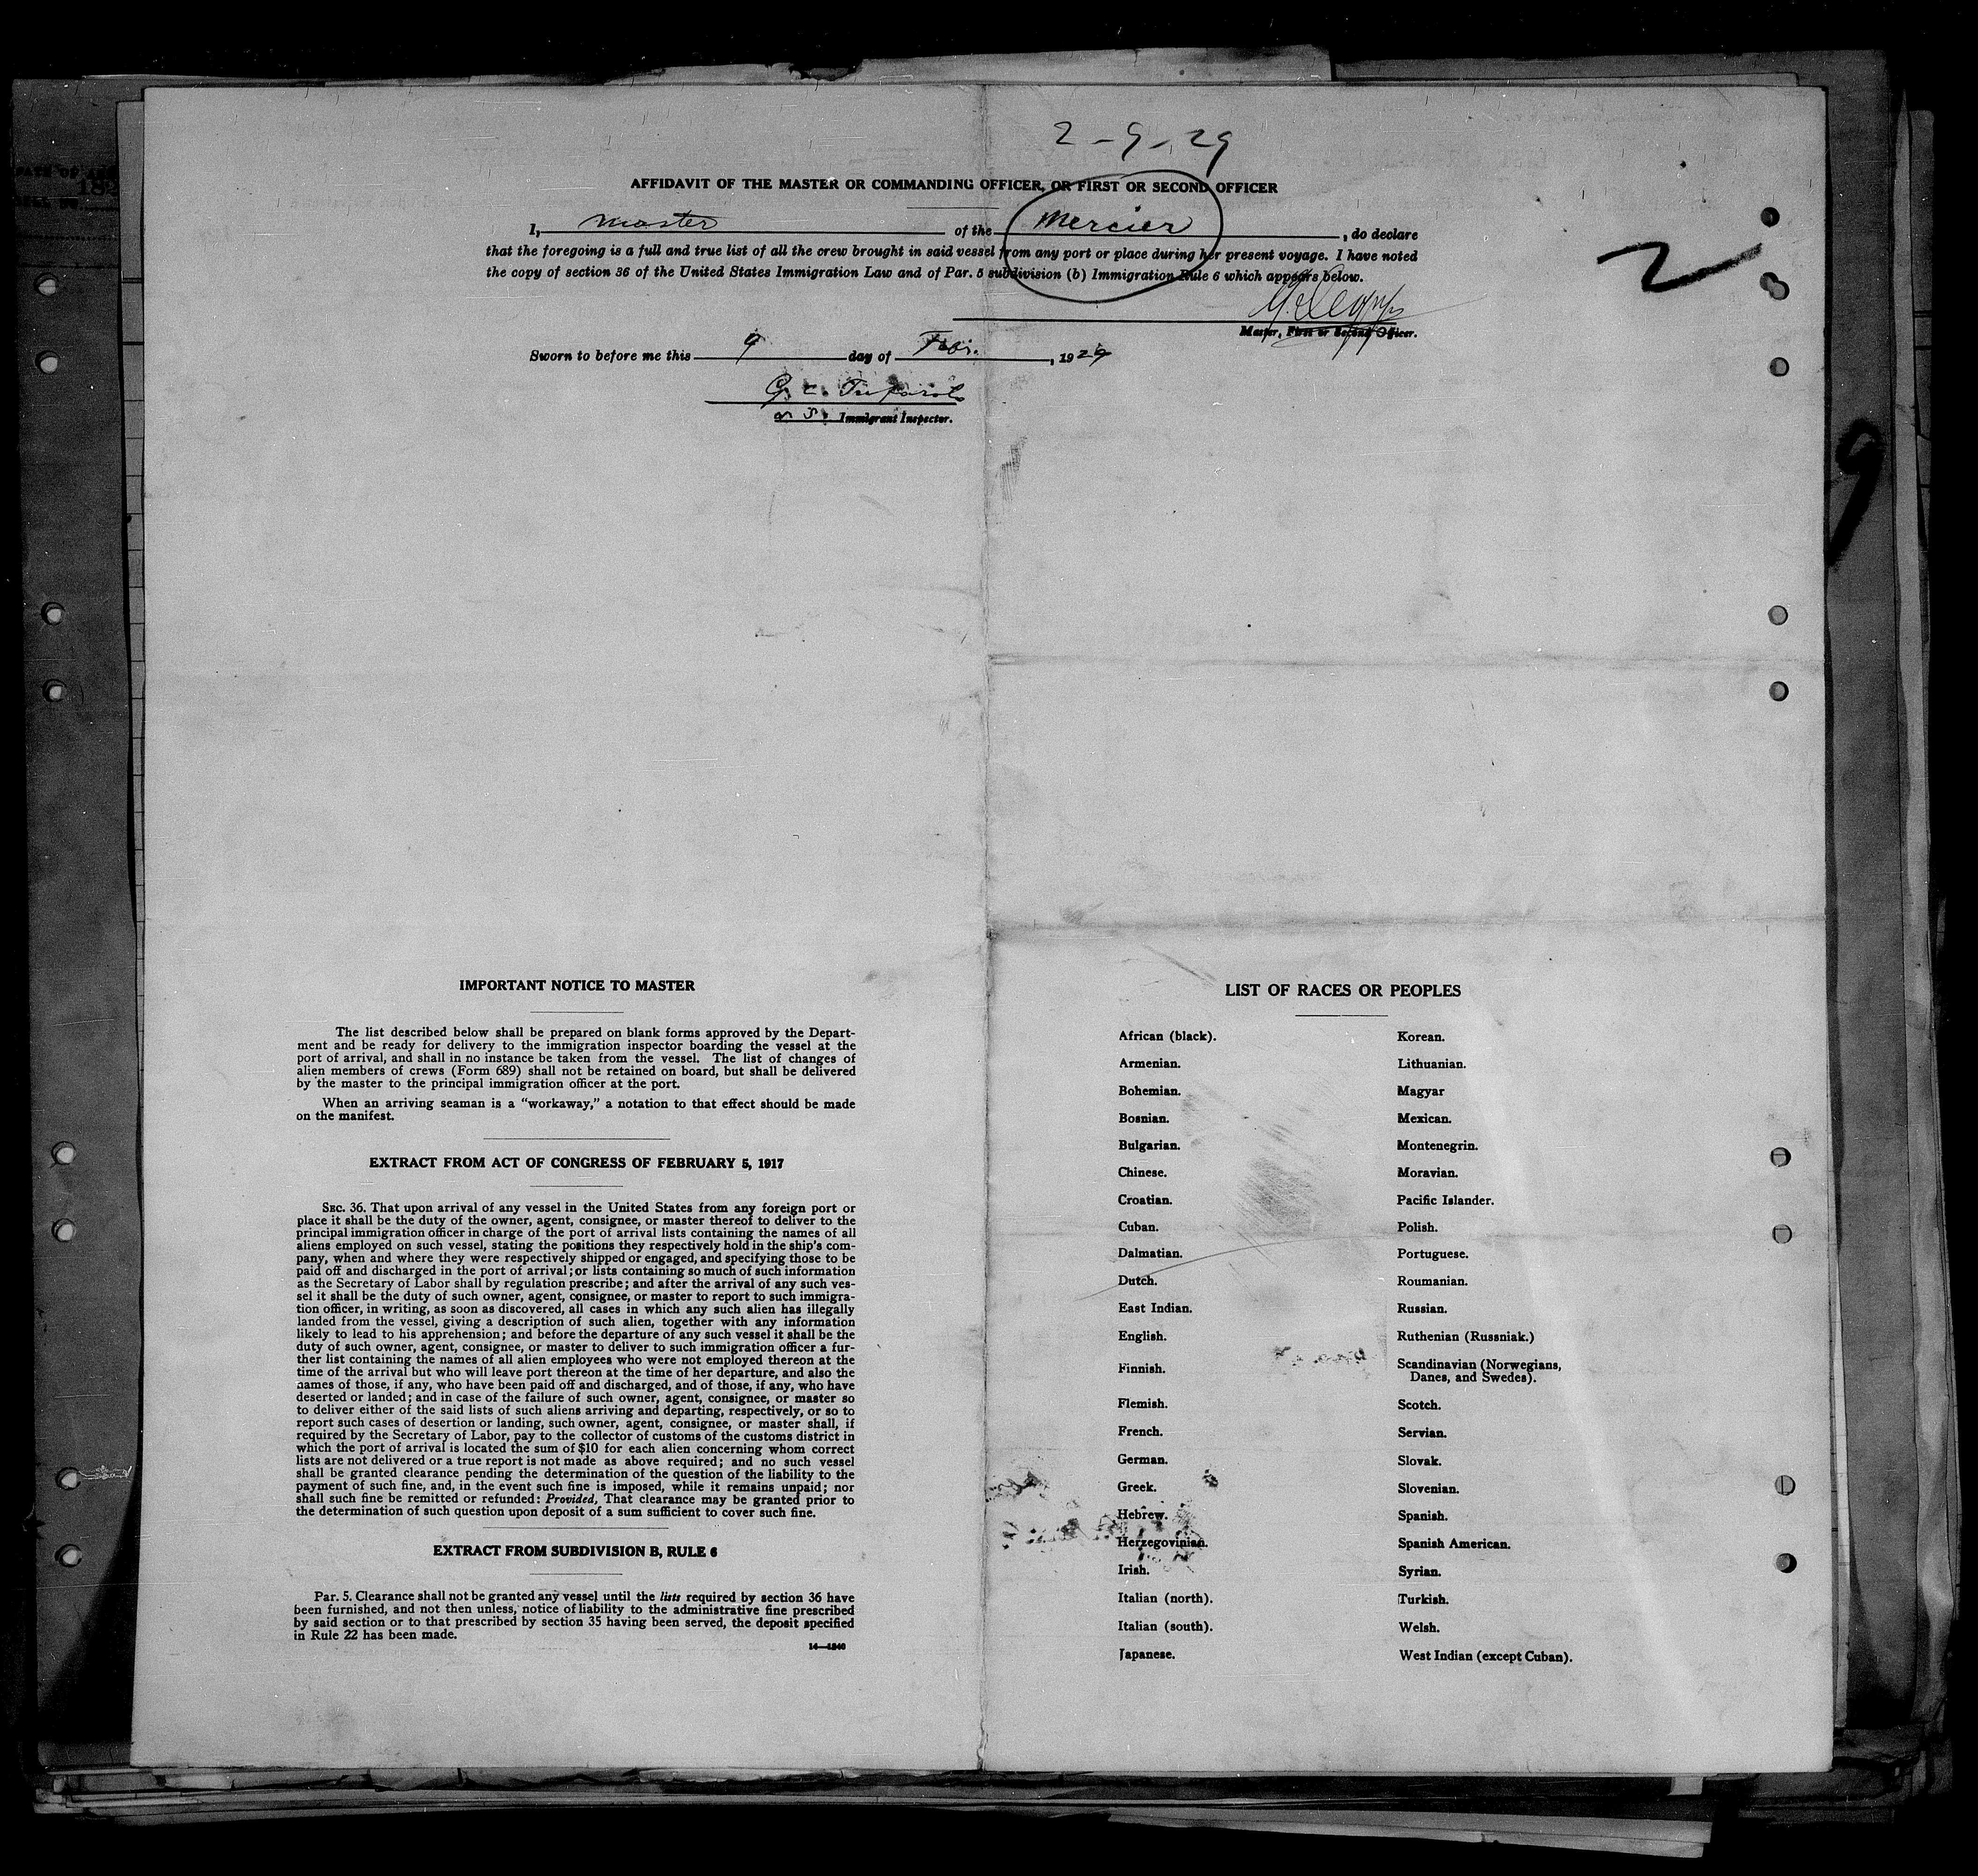 2-9-29
AFFIDAVIT OF THE MASTER OR COMMANDING OFFICER, OR FIRST OR SECOND OFFICER
I, Master of the Mercier, do declare
that the foregoing is a full and true list of all the crew brought in said vessel from any port or place during her present voyage. I have noted
the copy of section 36 of the United States Immigration Law and of Par. 5 subdivision (b) Immigration Rule 6 which appears below.
2
Master, First or Second Officer.
Sworn to before me this 9 day of Feb., 1929
Immigrant Inspector.
9
IMPORTANT NOTICE TO MASTER
The list described below shall be prepared on blank forms approved by the Depart-
ment and be ready for delivery to the immigration inspector boarding the vessel at the
port of arrival, and shall in no instance be taken from the vessel. The list of changes of
alien members of crews (Form 689) shall not be retained on board, but shall be delivered
by the master to the principal immigration officer at the port.
When an arriving seaman is a "workaway," a notation to that effect should be made
on the manifest.
EXTRACT FROM ACT OF CONGRESS OF FEBRUARY 5, 1917
SEC. 36. That upon arrival of any vessel in the United States from any foreign port or
place it shall be the duty of the owner, agent, consignee, or master thereof to deliver to the
principal immigration officer in charge of the port of arrival lists containing the names of all
aliens employed on such vessel, stating the positions they respectively hold in the ship's com-
pany, when and where they were respectively shipped or engaged, and specifying those to be
paid off and discharged in the port of arrival; or lists containing so much of such information
as the Secretary of Labor shall by regulation prescribe; and after the arrival of any such ves-
sel it shall be the duty of such owner, agent, consignee, or master to report to such immigra-
tion officer, in writing, as soon as discovered, all cases in which any such alien has illegally
landed from the vessel, giving a description of such alien, together with any information
likely to lead to his apprehension; and before the departure of any such vessel it shall be the
duty of such owner, agent, consignee, or master to deliver to such immigration officer a fur-
ther list containing the names of all alien employees who were not employed thereon at the
time of the arrival but who will leave port thereon at the time of her departure, and also the
names of those, if any, who have been paid off and discharged, and of those, if any, who have
deserted or landed; and in case of the failure of such owner, agent, consignee, or master so
to deliver either of the said lists of such aliens arriving and departing, respectively, or so to
report such cases of desertion or landing, such owner, agent, consignee, or master shall, if
required by the Secretary of Labor, pay to the collector of customs of the customs district in
which the port of arrival is located the sum of $10 for each alien concerning whom correct
lists are not delivered or a true report is not made as above required; and no such vessel
shall be granted clearance pending the determination of the question of the liability to the
payment of such fine, and, in the event such fine is imposed, while it remains unpaid; nor
shall such fine be remitted or refunded: Provided, That clearance may be granted prior to
the determination of such question upon deposit of a sum sufficient to cover such fine.
EXTRACT FROM SUBDIVISION B, RULE 6
Par. 5. Clearance shall not be granted any vessel until the lists required by section 36 have
been furnished, and not then unless, notice of liability to the administrative fine prescribed
by said section or to that prescribed by section 35 having been served, the deposit specified
in Rule 22 has been made.
14—1240
LIST OF RACES OR PEOPLES
African (black).
Armenian.
Bohemian.
Bosnian.
Bulgarian.
Chinese.
Croatian.
Cuban.
Dalmatian.
Dutch.
East Indian.
English.
Finnish.
Flemish.
French.
German.
Greek.
Hebrew.
Herzegovinian.
Irish.
Italian (north).
Italian (south).
Japanese.
Korean.
Lithuanian.
Magyar
Mexican.
Montenegrin.
Moravian.
Pacific Islander.
Polish.
Portuguese.
Roumanian.
Russian.
Ruthenian (Russniak.)
Scandinavian (Norwegians,
Danes, and Swedes).
Scotch.
Servian.
Slovak.
Slovenian.
Spanish.
Spanish American.
Syrian.
Turkish.
Welsh.
West Indian (except Cuban).